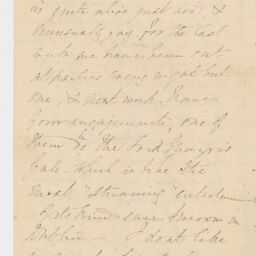 is quite alive just now, &
unusually gay, for the last
week we have been out
at parties every night but
one, & next week I have
four engagements, one of
them to the Lord Mayor's
ball which is to be the
most "stunning" entertainment
of its kind ever known in
Dublin — I don't like